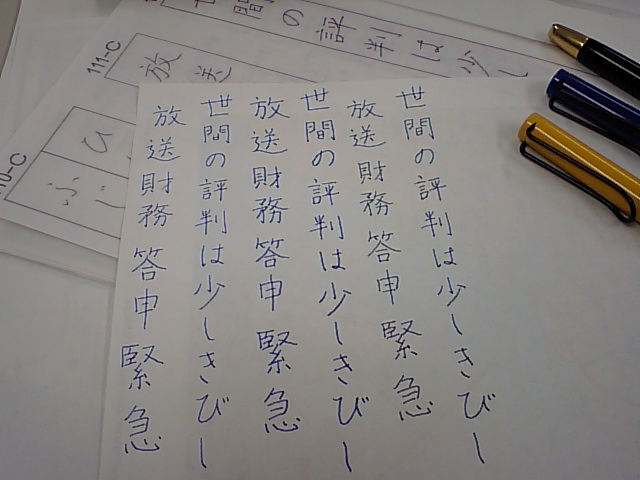 世間の評判は少しきびし
放送財務答申緊急
世間の評判は少しきびし
放送財務答申緊急
世間の評判は少しきびし
放送財務答申緊急
間の評判は少し
111-C
放送
0-C
ひ
ふじ